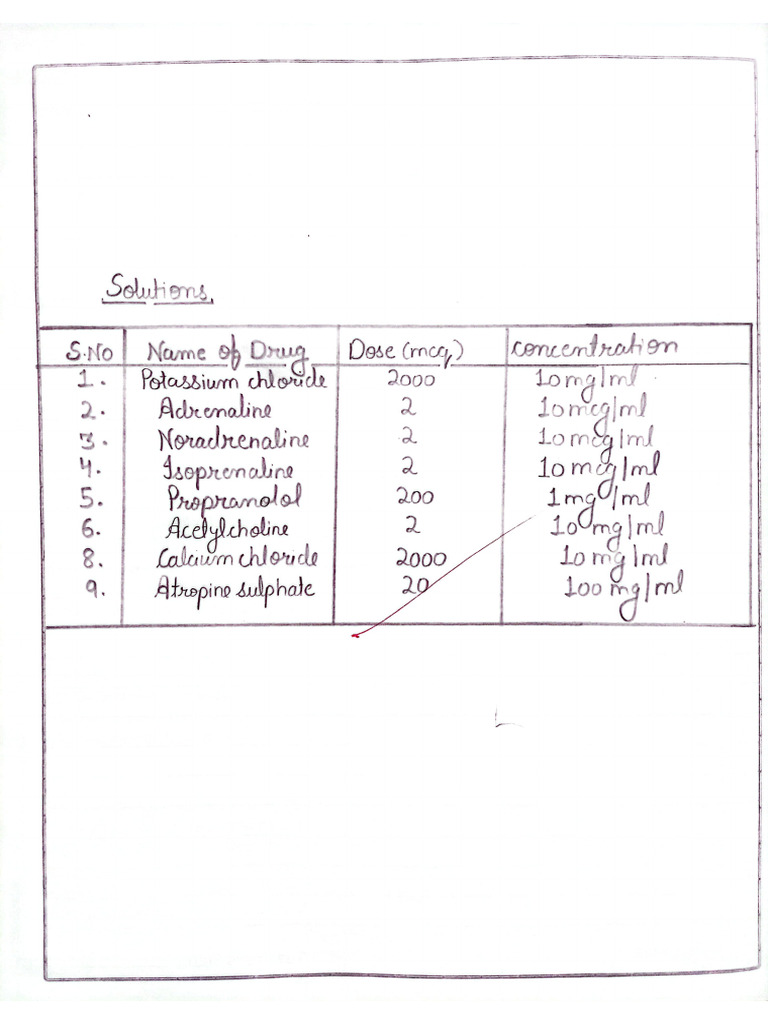 Solutions.
S.No Name of Drug Dose (mcq) concentration
1. Potassium chloride 2000 10mg/ml
2. Adrenaline 2 10mcg/ml
3. Noradrenaline 2 10mcg/ml
4. Isoprenaline 2 10mcg/ml
5. Propranolol 200 1mg/ml
6. Acetylcholine 2 10mg/ml
8. Calcium chloride 2000 10mg/ml
9. Atropine sulphate 20 100mg/ml